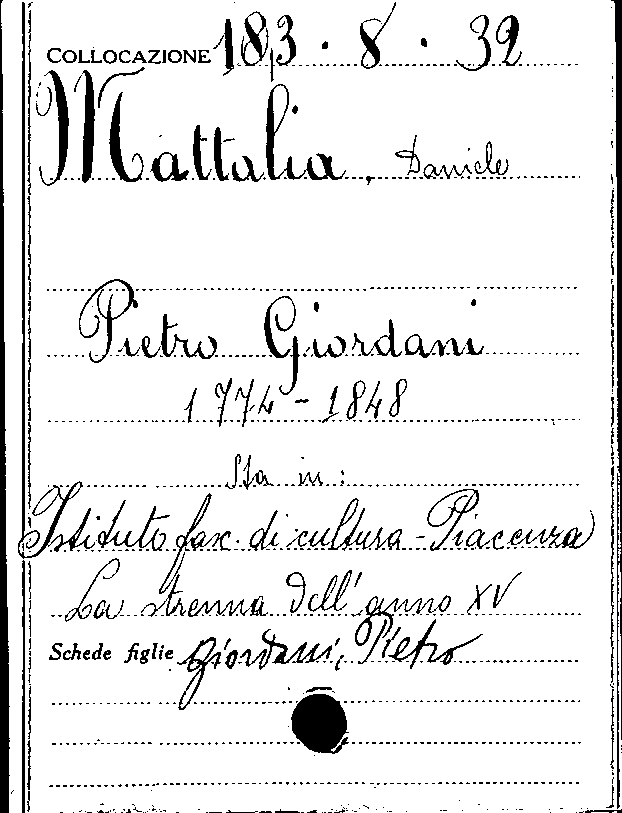 COLLOCAZIONE 183 . 8 . 32
Mattalia, Daniele
Pietro Giordani
1774 - 1848
Sta in:
Istituto fasc. di cultura - Piacenza
La strenna dell'anno XV
Schede figlie Giordani, Pietro